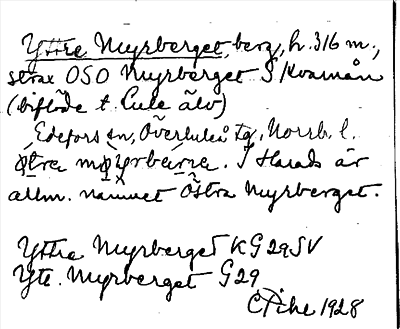 Yttre Myrberget, berg, h. 316 m.,
strax OSO Myrberget S Kvarnån
(biflöde t. Lule älv)
Edefors sn, Överluleå tg, Norrb. l.
I Harads är
allm. namnet Östra Myrberget.
Yttre Myrberget KG 29 SV
Ytt. Myrberget G 29
C Pihl 1928